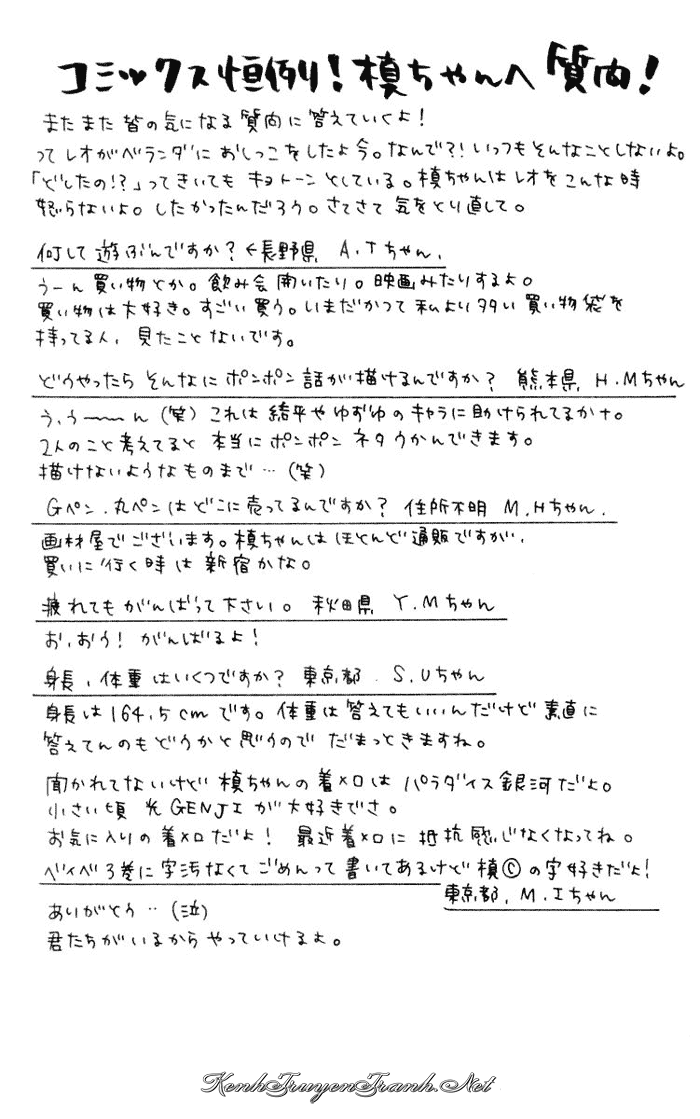 コミックス恒例!槙ちゃんへ質問!
またまた皆の気になる質問に答えていくよ!
ってレオがベランダにおしっこをしたよ今。なんで?!いっつもそんなことしないよ。
「どしたの!?」ってきいてもキョトーンとしている。槙ちゃんはレオをこんな時
怒らないよ。したかったんだろう。さてさて気をとり直して。
何して遊ぶんですか?←長野県 A.Tちゃん.
うーん買い物とか。飲み会開いたり。映画みたりするよ。
買い物は大好き。すごい買う。いまだかつて私より多い買い物袋を
持ってる人、見たことないです。
どうやったらそんなにポンポン話が描けるんですか? 熊本県 H.Mちゃん
う、う〜〜ん(笑)これは綺平やゆずゆのキャラに助けられてるかナ。
2人のこと考えてると本当にポンポンネタうかんできます。
描けないようなものまで…(笑)
Gペン、丸ペンはどこに売ってるんですか? 住所不明 M.Hちゃん.
画材屋でございます。槙ちゃんはほとんど通販ですが、
買いに行く時は新宿かな。
疲れてもがんばって下さい。 秋田県 Y.Mちゃん
お、おう!がんばるよ!
身長、体重はいくつですか? 東京都. S.Uちゃん
身長は164.5cmです。体重は答えてもいいんだけど素直に
答えてんのもどうかと思うのでだまっときますね。
聞かれてないけど槙ちゃんの着メロはパラダイス銀河だよ。
小さい頃光GENJIが大好きでさ。
お気に入りの着メロだよ! 最近着メロに抵抗感じなくなってね。
ベイベ3巻に字汚なくてごめんって書いてあるけど槙©の字好きだよ!
東京都、M.Iちゃん
ありがとう…(泣)
君たちがいるからやっていけるよ。
KenhTruyenTranh.Net